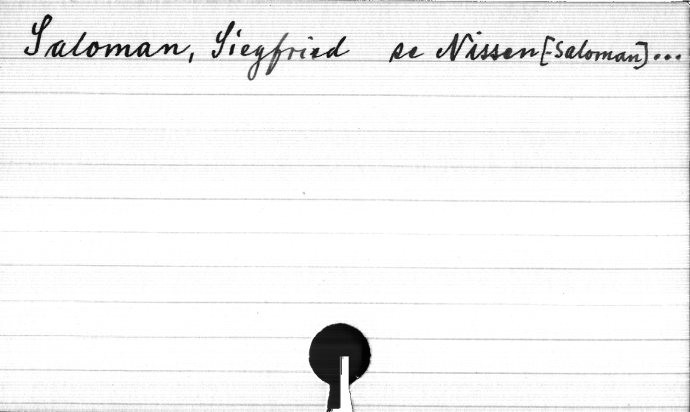 Saloman, Siegfried se Nissen [-Saloman]...